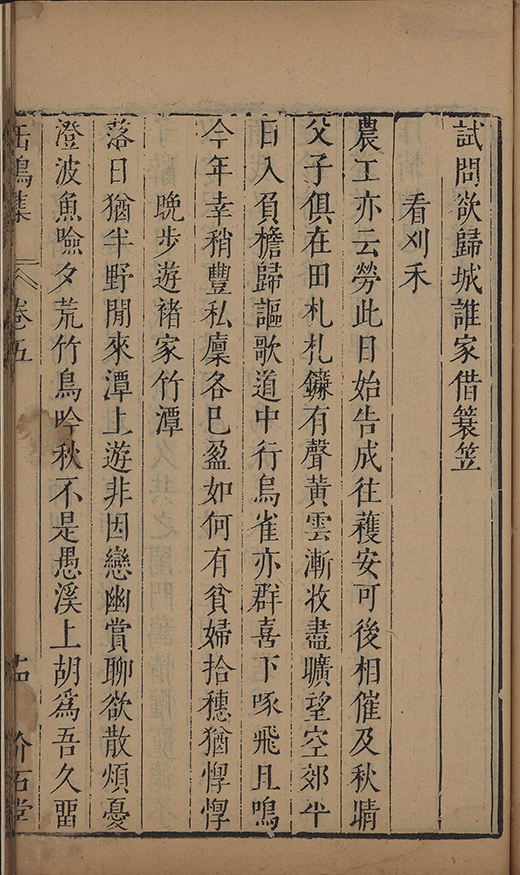 試問欲歸城誰家借簑笠
看刈禾
農工亦云勞此日始告成往蓷安可後相催及秋晴
父子俱在田札札鐮有聲黃雲漸收盡曠望空郊平
日入負檐歸謳歌道中行烏雀亦群喜下啄飛且鳴
今年幸稍豐私廩各已盈如何有貧婦拾穗猶惸惸
晚步遊褚家竹潭
落日猶半野閒來潭上遊非因戀幽賞聊欲散煩憂
澄波魚噞夕荒竹鳥吟秋不是愚溪上胡為吾久畱
缶鳴集 卷五 十五 竹石堂